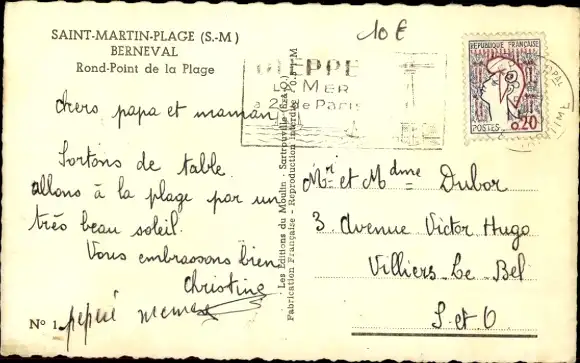 SAINT-MARTIN-PLAGE (S.-M)
BERNEVAL
Rond-Point de la Plage
10 €
chers papa et maman
Sortons de table.
allons à la plage par un
très beau soleil.
Vous embrassons bien
Christine
pépéré memere
N° 1
Les Editions du Moulin - Sartrouville (S&O)
Fabrication Française - Reproduction Interdite
DIEPPE
LA MER
à 2h de Paris
REPUBLIQUE FRANÇAISE
POSTES 0,20
Mr et Mdme Dubor
3. Avenue Victor Hugo
Villiers Le Bel
S et O